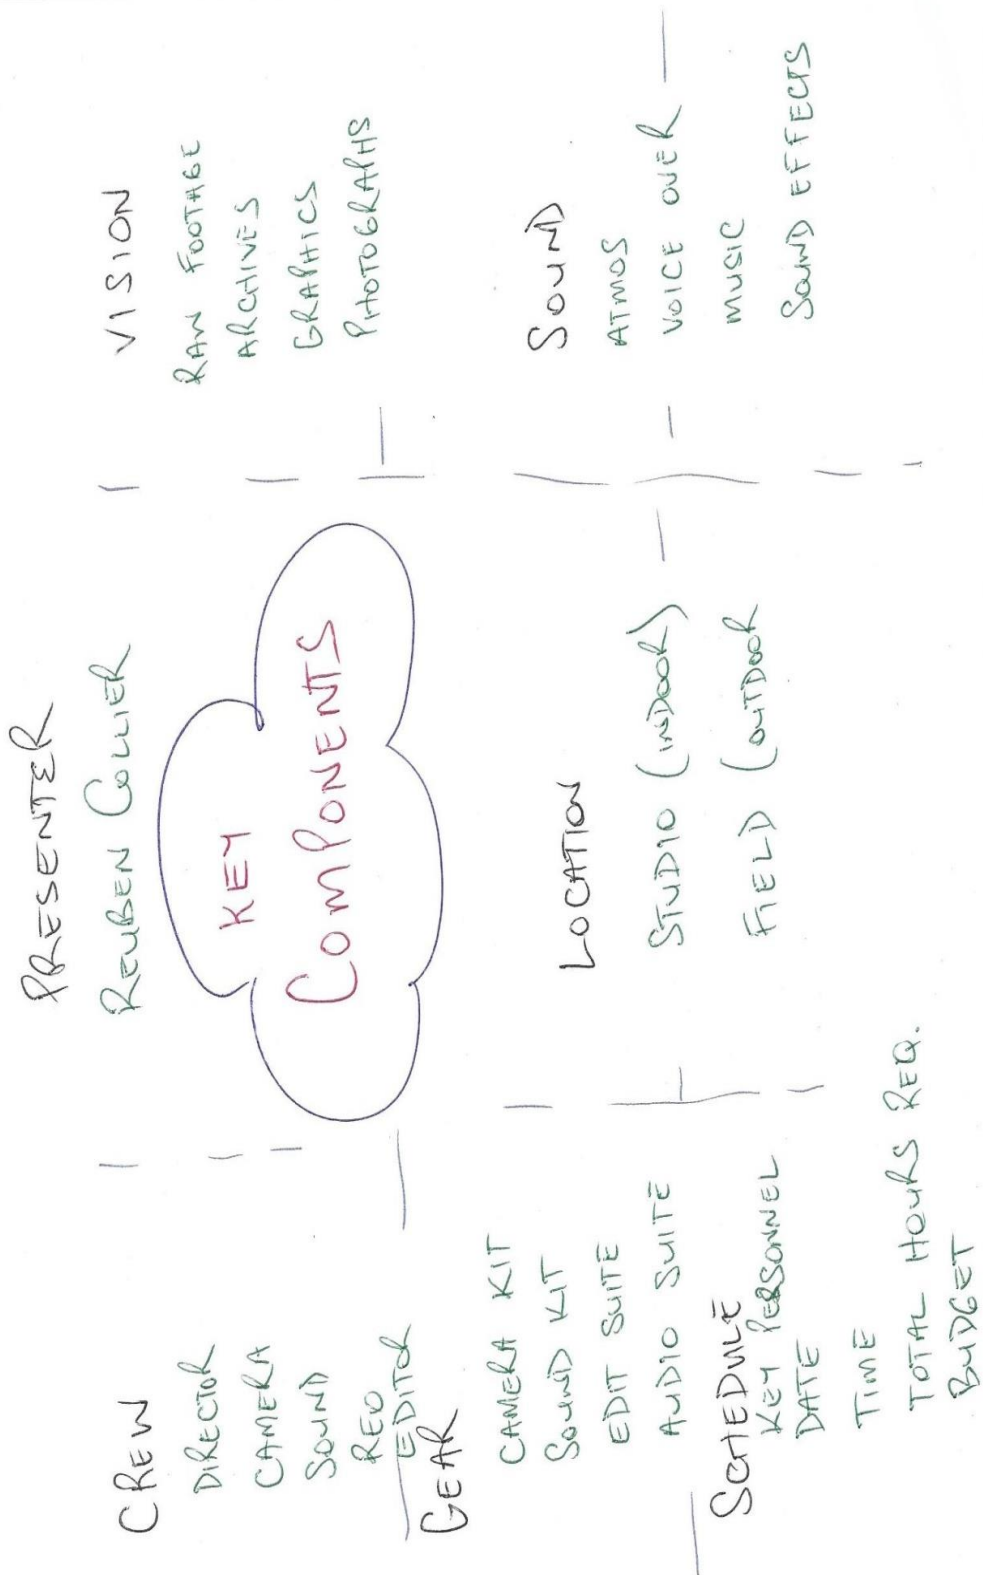 PRESENTER
REUBEN COLLIER
KEY
COMPONENTS
CREW
DIRECTOR
CAMERA
SOUND
REO
EDITOR
GEAR
CAMERA KIT
SOUND KIT
EDIT SUITE
AUDIO SUITE
SCHEDULE
KEY PERSONNEL
DATE
TIME
TOTAL HOURS REQ.
BUDGET
LOCATION
STUDIO (INDOOR)
FIELD (OUTDOOR
VISION
RAW FOOTAGE
ARCHIVES
GRAPHICS
PHOTOGRAPHS
SOUND
ATMOS
VOICE OVER
MUSIC
SOUND EFFECTS